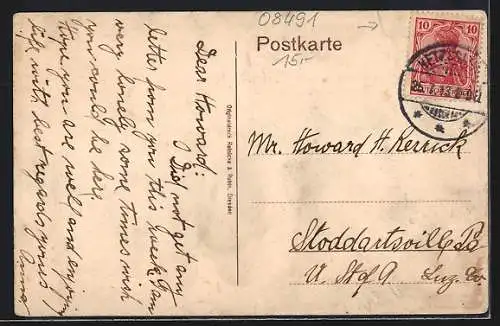 08491
Postkarte
15,-
10
Dear Howard:
I Did not get any
letter from you this week. I am
very lonely some times wish
you could be here.
Hope you are well and enjoying
life, with best regards yours
Anna
Mr. Howard H. Kerrick
Stoddartsville Pa
U. St of A Luz. Co.